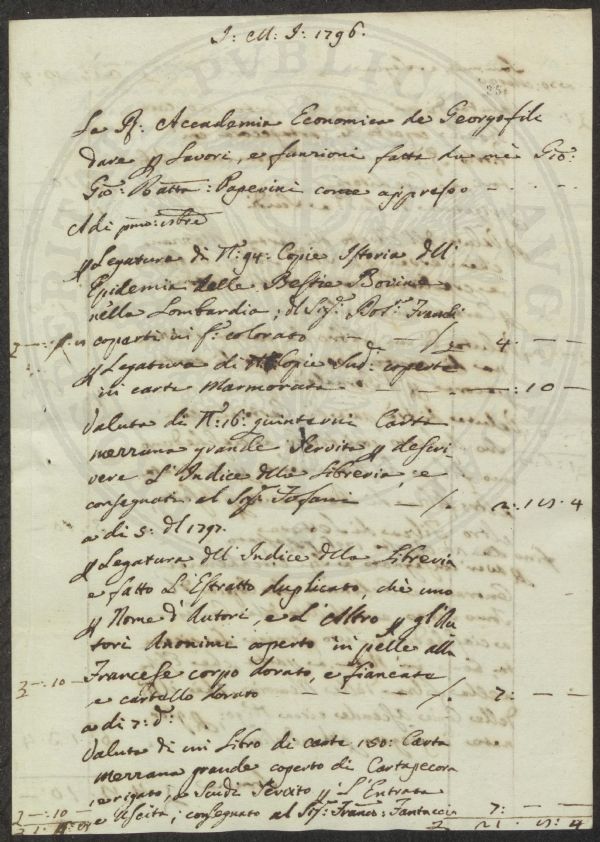 I: M: I: 1796.
La R: Accademia Economica de Georgofili
dare p Lavori, e funzioni fatta da mè Gio:
Gio: Batta: Papevini come appresso
A di pmo:
p Legatura di N: 94: Copie Istoria dell'
Epidemia delle Bestie Bovine
nella Lombardia; del Sig: Dot: Franch
coperti in f: colorato - - /: 4: - -
p Legatura di Copie Sud: coperte
in carta Marmorata - - : 10 -
Valuta di N: 16: quinterni Carta
mezzana grande Servita p descri
vere L'Indice della Libreria, e
consegnata al Sig: Tofani - /: 2: 15: 4
a di 5: del 1797.
p Legatura dell'Indice della Libreria
e fatto L'Estratto duplicato, chè uno
p Nome d'Autori, e L'Altro p gl'Au
tori Anonimi coperto in pelle alla
Francese corpo dorato, e fiancate
e cartello dorato - /: 7: - -
a di 7: d:
Valuta di un Libro di carte 150: Carta
mezzana grande coperto di Cartapecora
rigato, e Servito p L'Entrata
e Uscita, consegnato al Sig: Franco: Fantaccia 7: - -
21 15: 4